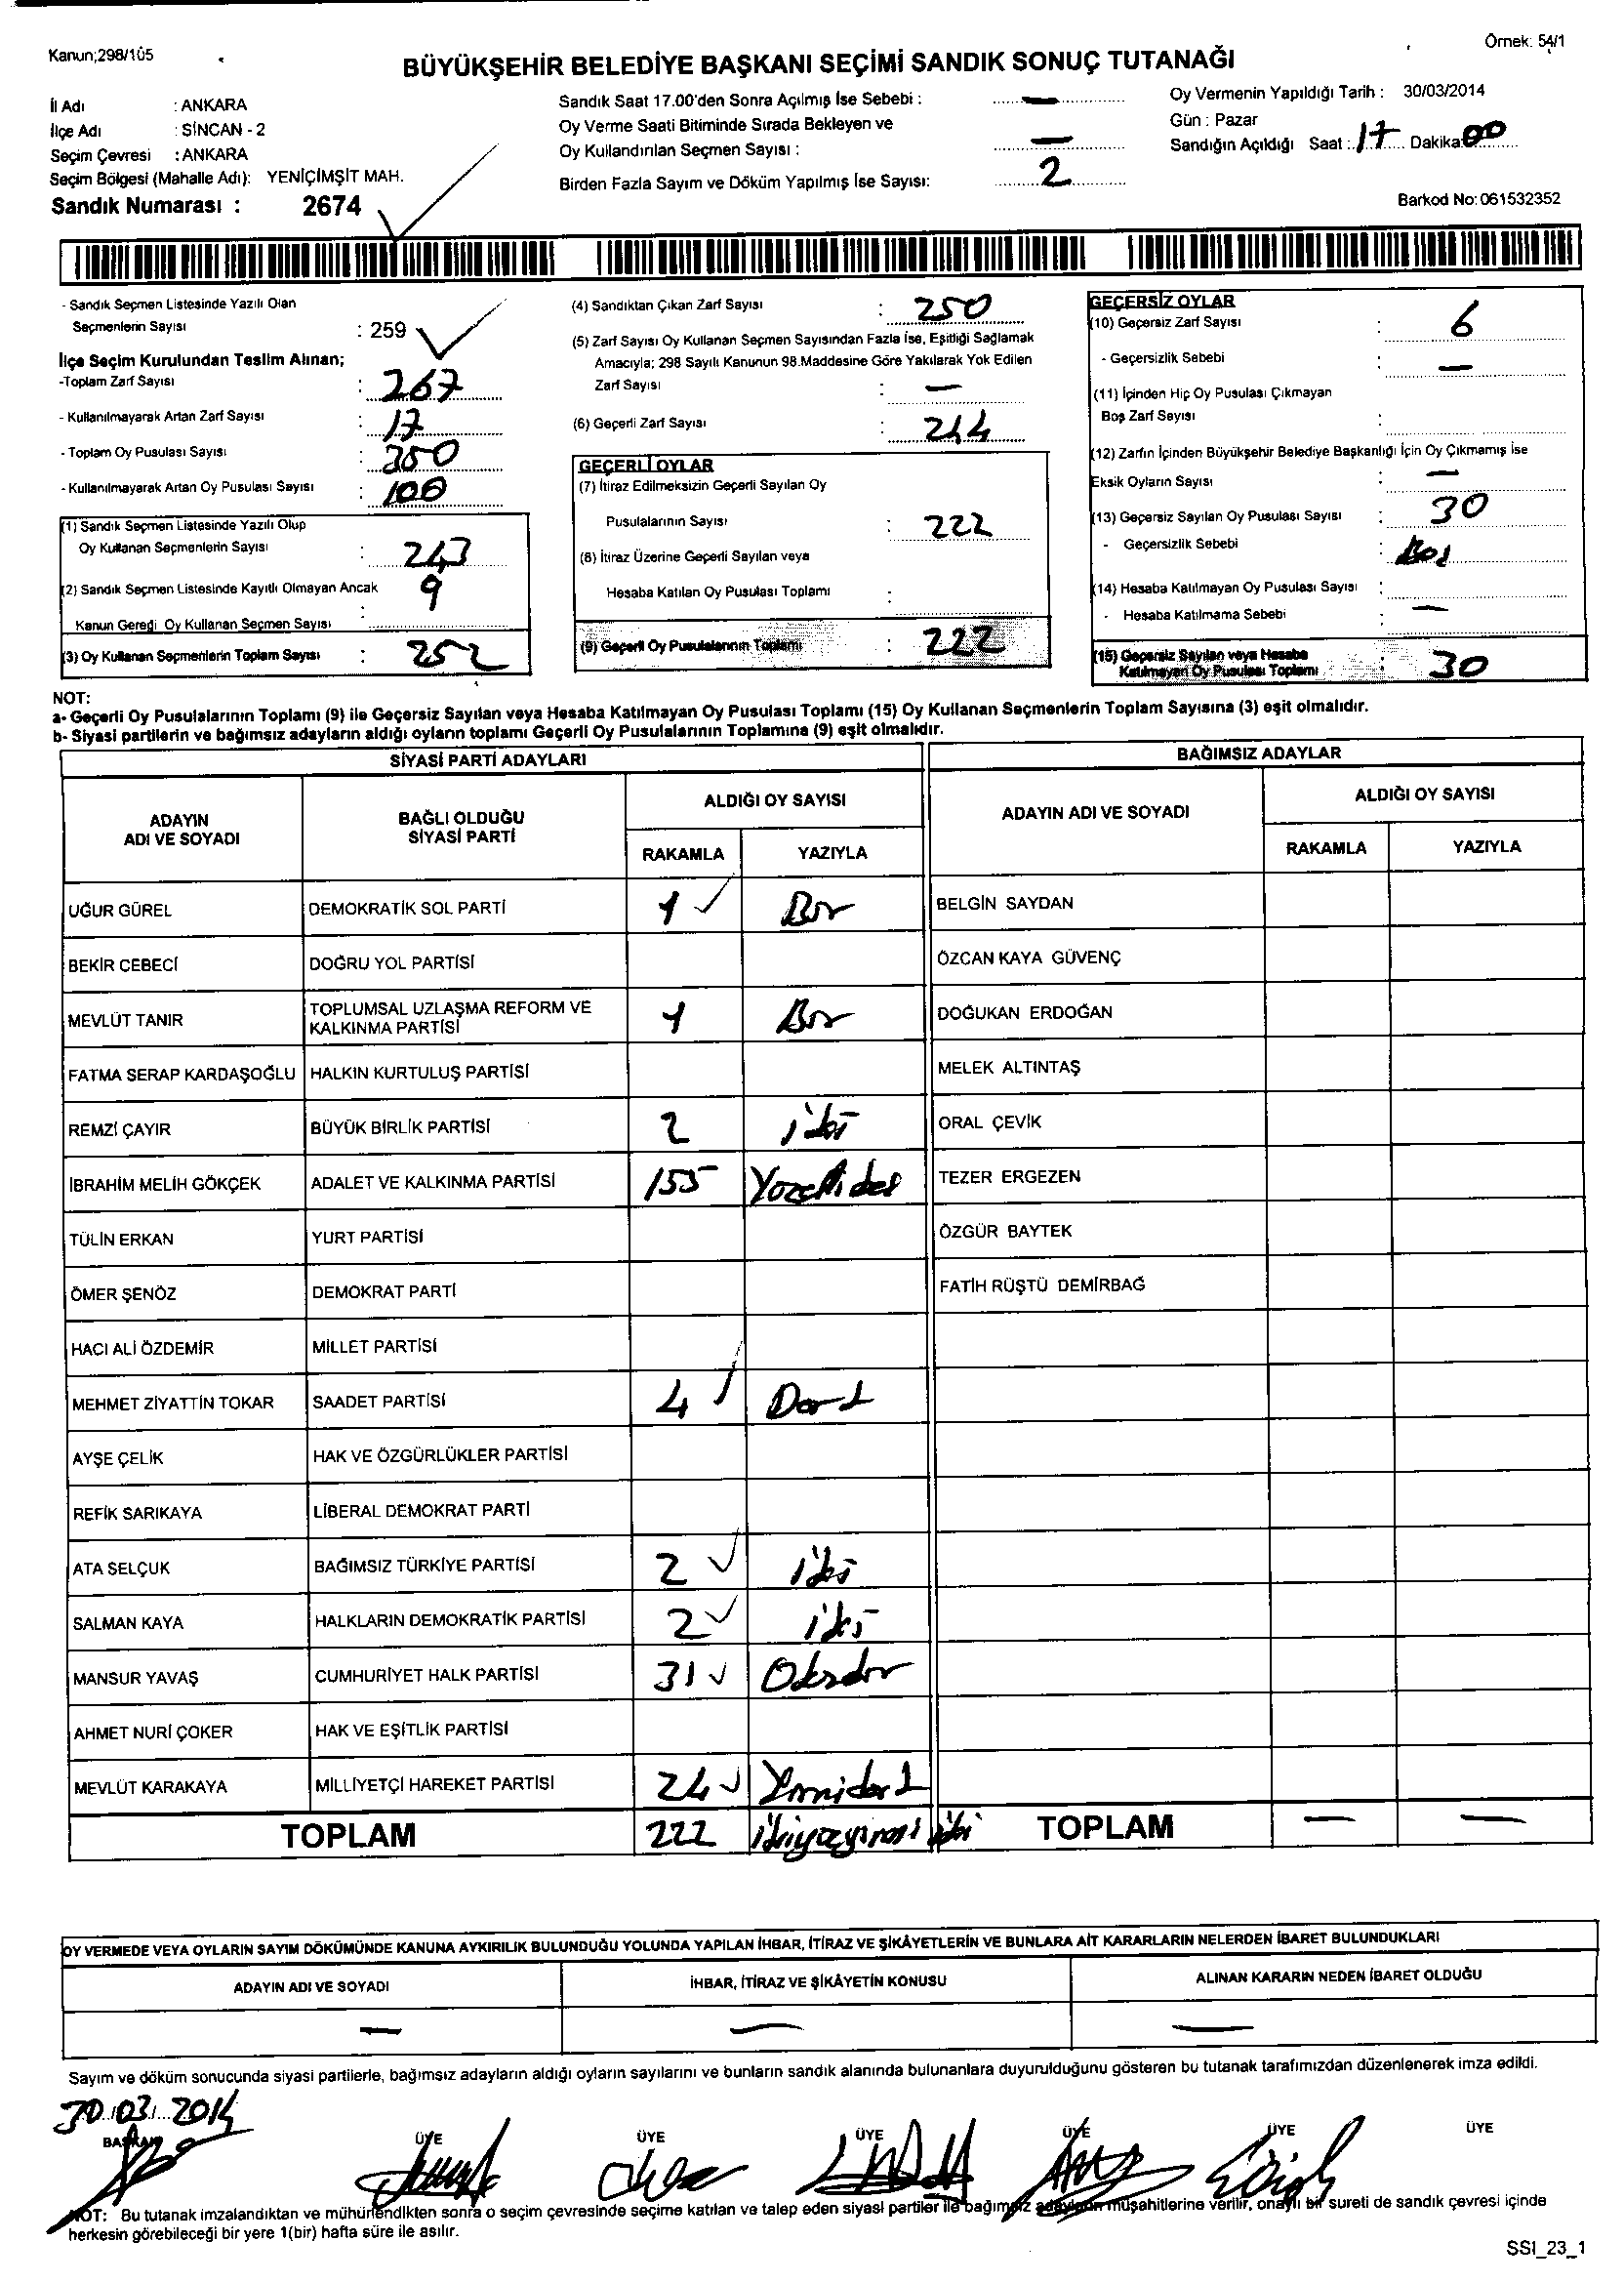 Kanun;298/105
Örnek: 54/1
BÜYÜKŞEHİR BELEDİYE BAŞKANI SEÇİMİ SANDIK SONUÇ TUTANAĞI
İl Adı : ANKARA
İlçe Adı : SİNCAN - 2
Seçim Çevresi : ANKARA
Seçim Bölgesi (Mahalle Adı): YENİÇİMŞİT MAH.
Sandık Numarası : 2674
Sandık Saat 17.00'den Sonra Açılmış İse Sebebi : —
Oy Verme Saati Bitiminde Sırada Bekleyen ve
Oy Kullandırılan Seçmen Sayısı : —
Birden Fazla Sayım ve Döküm Yapılmış İse Sayısı: 2
Oy Vermenin Yapıldığı Tarih : 30/03/2014
Gün : Pazar
Sandığın Açıldığı Saat : 17 Dakika: 00
Barkod No: 061532352
- Sandık Seçmen Listesinde Yazılı Olan
Seçmenlerin Sayısı : 259
İlçe Seçim Kurulundan Teslim Alınan;
-Toplam Zarf Sayısı : 267
- Kullanılmayarak Artan Zarf Sayısı : 17
- Toplam Oy Pusulası Sayısı : 350
- Kullanılmayarak Artan Oy Pusulası Sayısı : 100
(1) Sandık Seçmen Listesinde Yazılı Olup
Oy Kullanan Seçmenlerin Sayısı : 243
(2) Sandık Seçmen Listesinde Kayıtlı Olmayan Ancak
Kanun Gereği Oy Kullanan Seçmen Sayısı : 9
(3) Oy Kullanan Seçmenlerin Toplam Sayısı : 252
(4) Sandıktan Çıkan Zarf Sayısı : 250
(5) Zarf Sayısı Oy Kullanan Seçmen Sayısından Fazla İse, Eşitliği Sağlamak
Amacıyla; 298 Sayılı Kanunun 98.Maddesine Göre Yakılarak Yok Edilen
Zarf Sayısı : —
(6) Geçerli Zarf Sayısı : 244
GEÇERLİ OYLAR
(7) İtiraz Edilmeksizin Geçerli Sayılan Oy
Pusulalarının Sayısı : 222
(8) İtiraz Üzerine Geçerli Sayılan veya
Hesaba Katılan Oy Pusulası Toplamı :
(9) Geçerli Oy Pusulalarının Toplamı : 222
GEÇERSİZ OYLAR
(10) Geçersiz Zarf Sayısı : 6
- Geçersizlik Sebebi : —
(11) İçinden Hiç Oy Pusulası Çıkmayan
Boş Zarf Sayısı :
(12) Zarfın İçinden Büyükşehir Belediye Başkanlığı İçin Oy Çıkmamış İse
Eksik Oyların Sayısı : —
(13) Geçersiz Sayılan Oy Pusulası Sayısı : 30
- Geçersizlik Sebebi :
(14) Hesaba Katılmayan Oy Pusulası Sayısı :
- Hesaba Katılmama Sebebi : —
(15) Geçersiz Sayılan veya Hesaba
Katılmayan Oy Pusulası Toplamı : 30
NOT:
a- Geçerli Oy Pusulalarının Toplamı (9) ile Geçersiz Sayılan veya Hesaba Katılmayan Oy Pusulası Toplamı (15) Oy Kullanan Seçmenlerin Toplam Sayısına (3) eşit olmalıdır.
b- Siyasi partilerin ve bağımsız adayların aldığı oyların toplamı Geçerli Oy Pusulalarının Toplamına (9) eşit olmalıdır.
SİYASİ PARTİ ADAYLARI
BAĞIMSIZ ADAYLAR
ADAYIN ADI VE SOYADI
BAĞLI OLDUĞU SİYASİ PARTİ
ALDIĞI OY SAYISI
RAKAMLA YAZIYLA
ADAYIN ADI VE SOYADI
ALDIĞI OY SAYISI
RAKAMLA YAZIYLA
UĞUR GÜREL DEMOKRATİK SOL PARTİ 1 Bir BELGİN SAYDAN
BEKİR CEBECİ DOĞRU YOL PARTİSİ ÖZCAN KAYA GÜVENÇ
MEVLÜT TANIR TOPLUMSAL UZLAŞMA REFORM VE KALKINMA PARTİSİ 1 Bir DOĞUKAN ERDOĞAN
FATMA SERAP KARDAŞOĞLU HALKIN KURTULUŞ PARTİSİ MELEK ALTINTAŞ
REMZİ ÇAYIR BÜYÜK BİRLİK PARTİSİ 2 iki ORAL ÇEVİK
İBRAHİM MELİH GÖKÇEK ADALET VE KALKINMA PARTİSİ 155 Yüzellibeş TEZER ERGEZEN
TÜLİN ERKAN YURT PARTİSİ ÖZGÜR BAYTEK
ÖMER ŞENÖZ DEMOKRAT PARTİ FATİH RÜŞTÜ DEMİRBAĞ
HACI ALİ ÖZDEMİR MİLLET PARTİSİ
MEHMET ZİYATTİN TOKAR SAADET PARTİSİ 4 Dört
AYŞE ÇELİK HAK VE ÖZGÜRLÜKLER PARTİSİ
REFİK SARIKAYA LİBERAL DEMOKRAT PARTİ
ATA SELÇUK BAĞIMSIZ TÜRKİYE PARTİSİ 2 iki
SALMAN KAYA HALKLARIN DEMOKRATİK PARTİSİ 2 iki
MANSUR YAVAŞ CUMHURİYET HALK PARTİSİ 31 Otuzbir
AHMET NURİ ÇOKER HAK VE EŞİTLİK PARTİSİ
MEVLÜT KARAKAYA MİLLİYETÇİ HAREKET PARTİSİ 24 Yirmidört
TOPLAM 222 ikiyüzyirmi iki TOPLAM — —
OY VERMEDE VEYA OYLARIN SAYIM DÖKÜMÜNDE KANUNA AYKIRILIK BULUNDUĞU YOLUNDA YAPILAN İHBAR, İTİRAZ VE ŞİKÂYETLERİN VE BUNLARA AİT KARARLARIN NELERDEN İBARET BULUNDUKLARI
ADAYIN ADI VE SOYADI İHBAR, İTİRAZ VE ŞİKÂYETİN KONUSU ALINAN KARARIN NEDEN İBARET OLDUĞU
— — —
Sayım ve döküm sonucunda siyasi partilerle, bağımsız adayların aldığı oyların sayılarını ve bunların sandık alanında bulunanlara duyurulduğunu gösteren bu tutanak tarafımızdan düzenlenerek imza edildi.
30/03/2014
BAŞKAN ÜYE ÜYE ÜYE ÜYE ÜYE ÜYE
NOT: Bu tutanak imzalandıktan ve mühürlendikten sonra o seçim çevresinde seçime katılan ve talep eden siyasi partiler ile bağımsız adayların müşahitlerine verilir, onaylı bir sureti de sandık çevresi içinde
herkesin görebileceği bir yere 1(bir) hafta süre ile asılır.
SSI_23_1